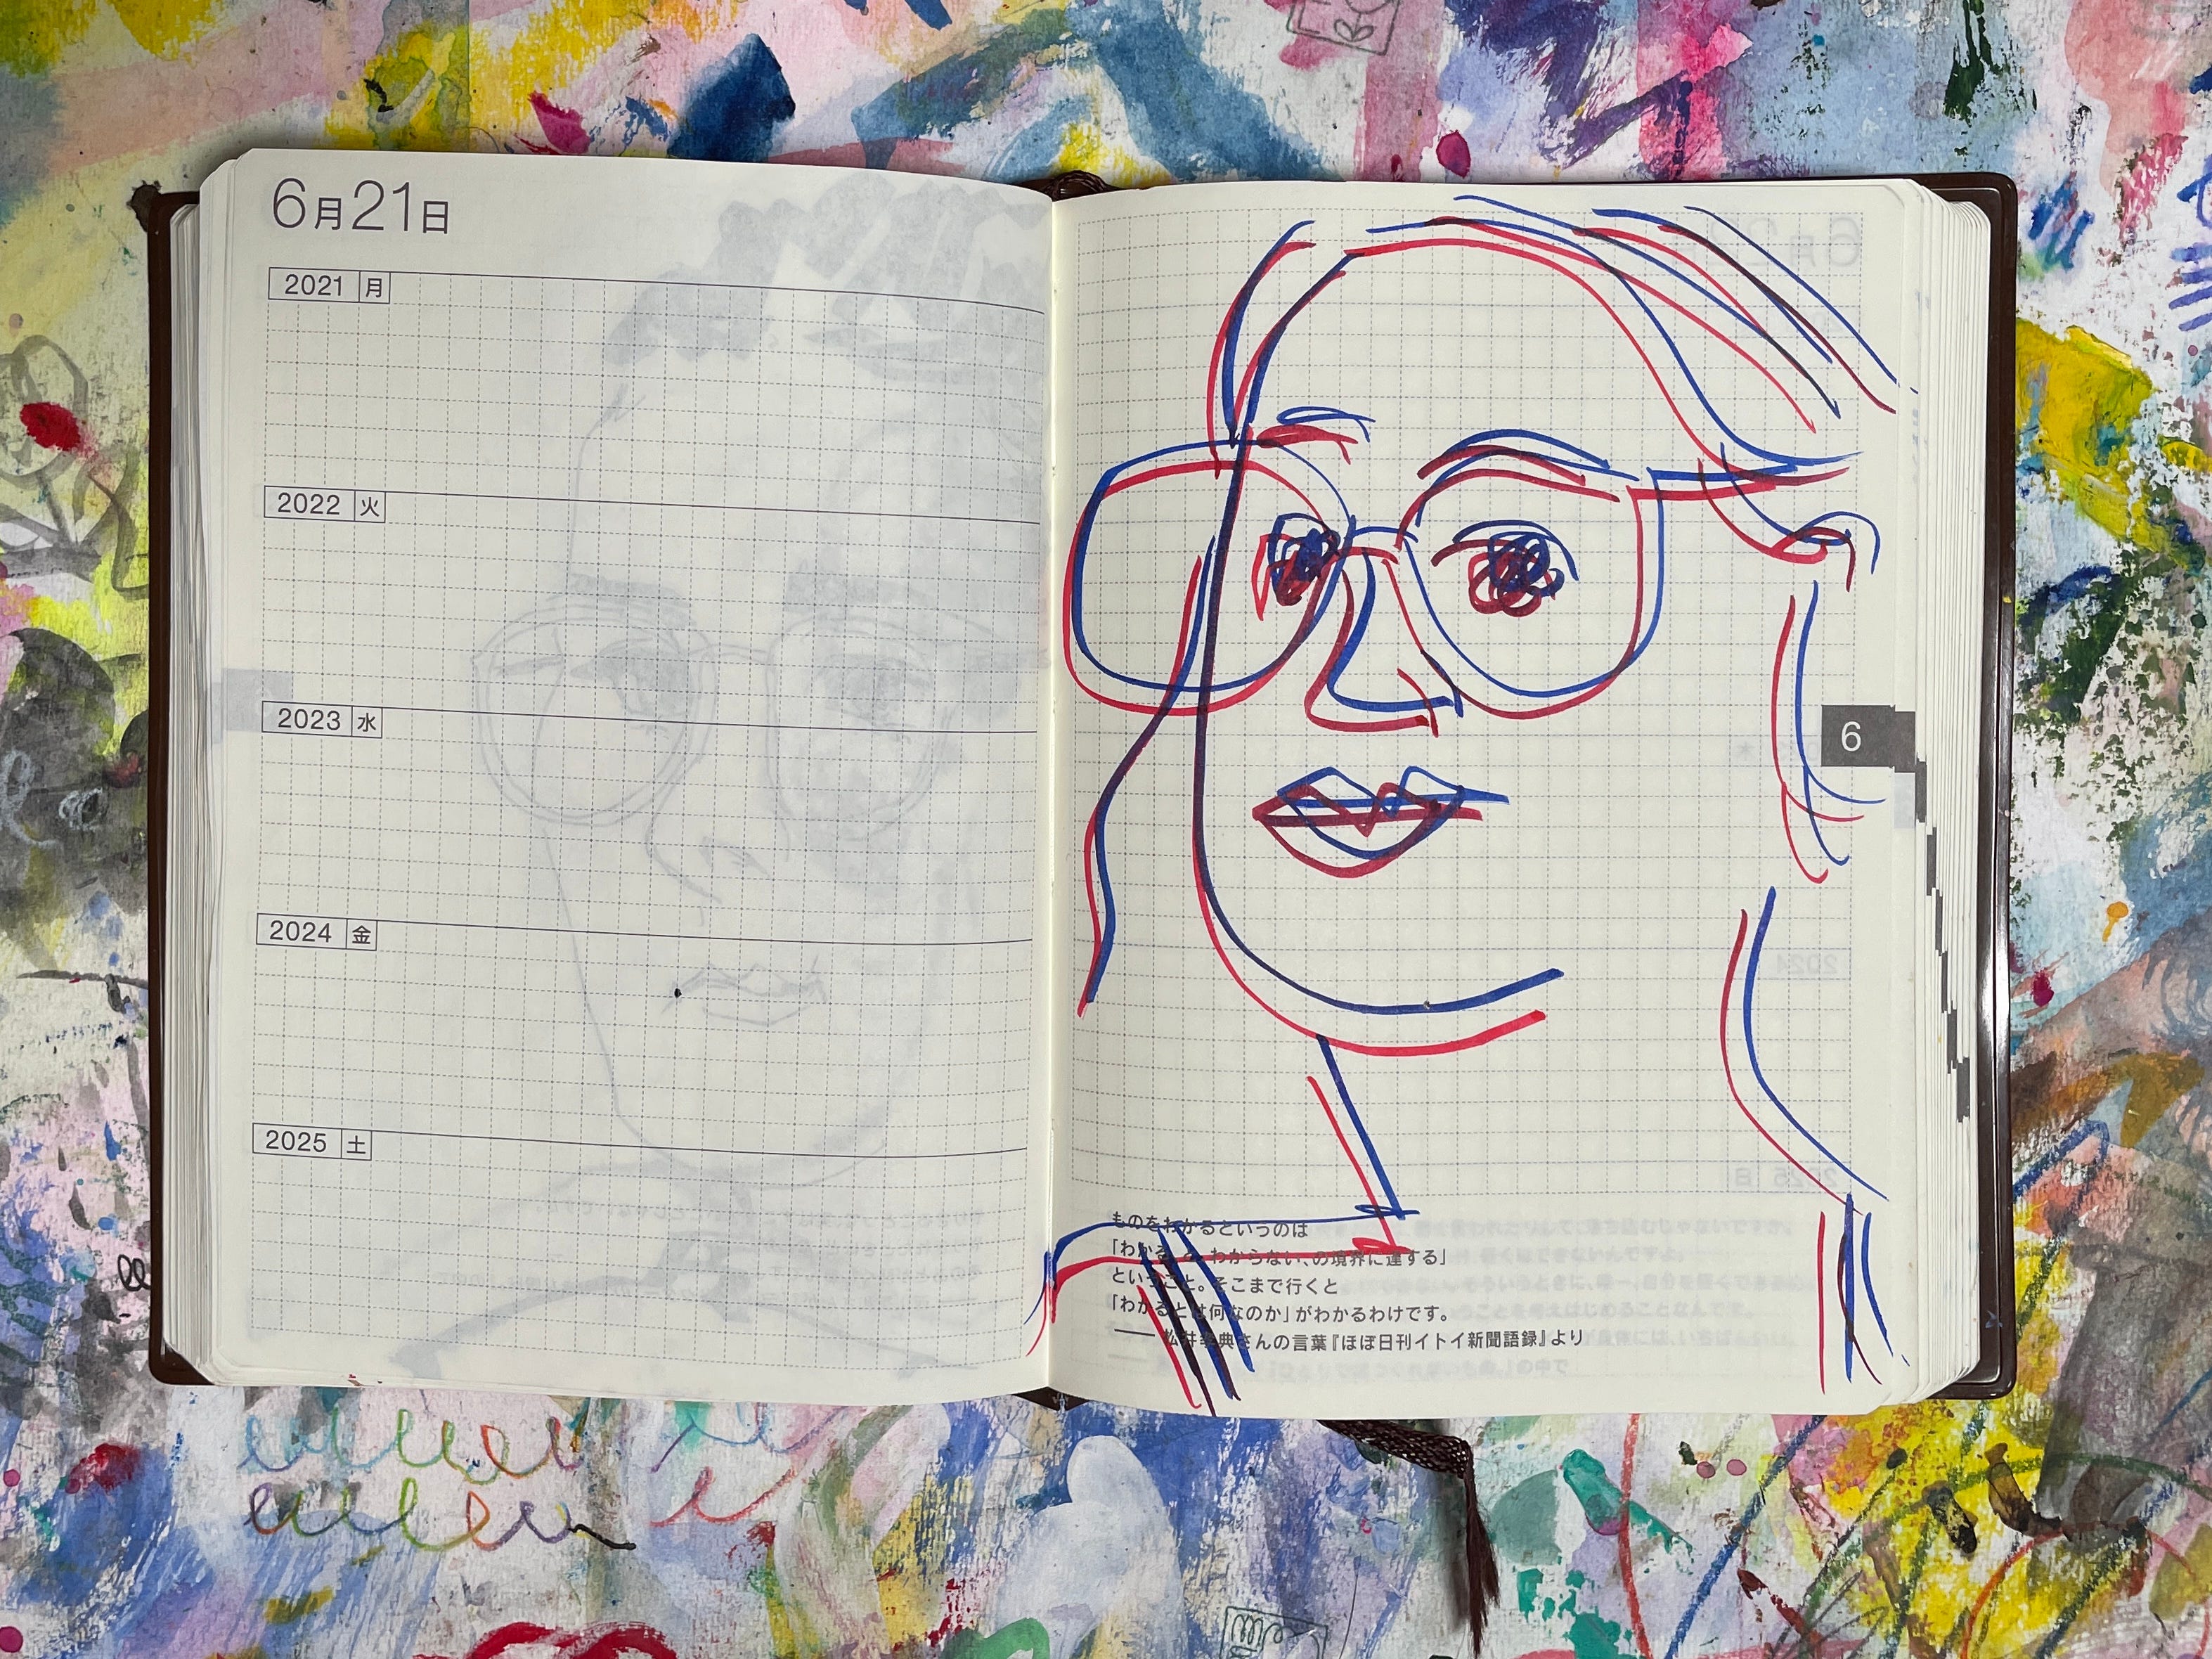 6月21日
2021 月
2022 火
2023 水
2024 金
2025 土
6
ものをわかるというのは
「わかる、と、わからない、の境界に達する」
ということ。そこまで行くと
「わかるとは何なのか」がわかるわけです。
—— 松井孝典さんの言葉『ほぼ日刊イトイ新聞語録』より